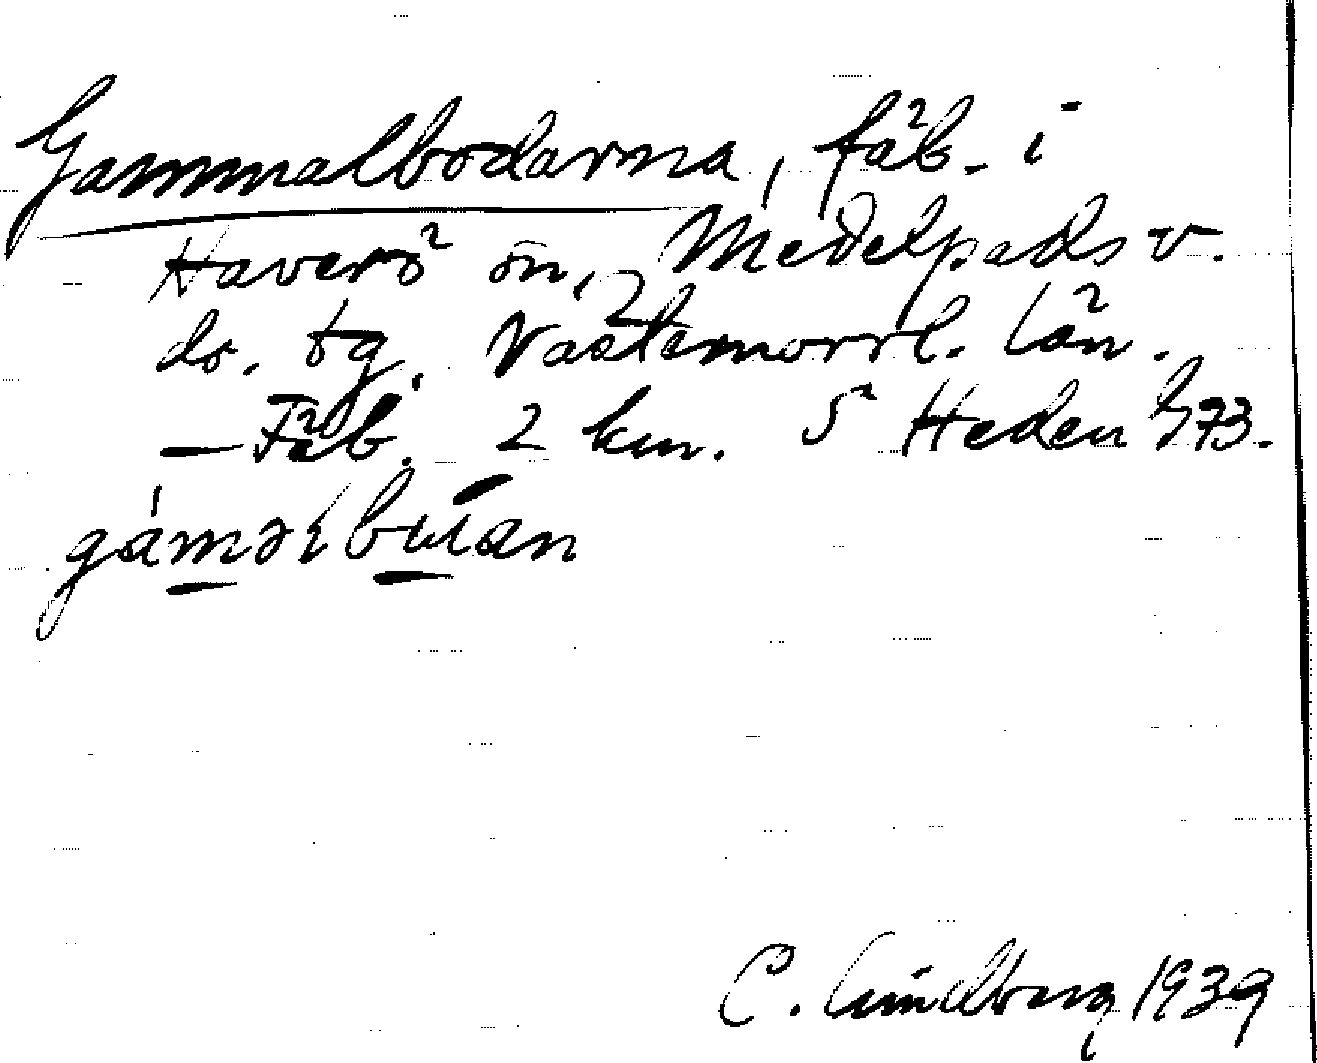 Gammalbodarna, fäb. i
Haverö sn, Medelpads v.
ds. tg. Västernorrl. län.
— Fäb. 2 km. S Heden h73.
C. Lindberg 1939